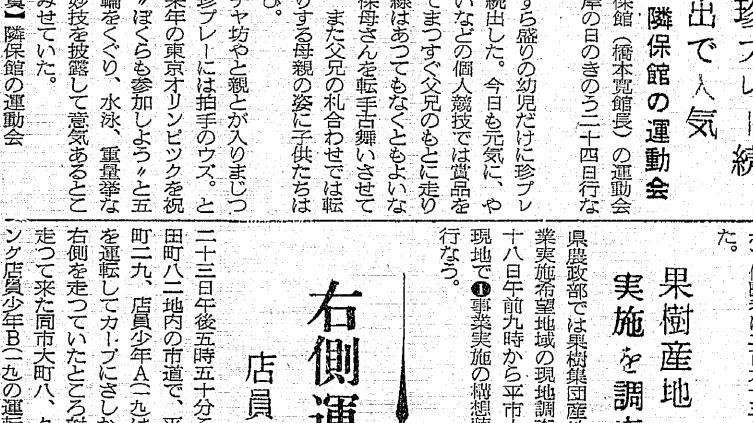 珍プレー続
出で人気
隣保館の運動会
保館(橋本寛館長)の運動会
岸の日のきのう二十四日行な
すら盛りの幼児だけに珍プレ
続出した。今日も元気に、や
いなどの個人競技では賞品を
てまつすぐ父兄のもとに走り
線はあつてもなくともよいな
保母さんを転手古舞いさせて
また父兄の札合わせでは転
りする母親の姿に子供たちは
び。
チヤ坊やと親とが入りまじつ
珍プレーには拍手のウズ。と
来年の東京オリンピツクを祝
〃ぼくらも参加しよう〃と五
輪をくぐり、水泳、重量挙な
妙技を披露して意気あるとこ
みせていた。
】隣保館の運動会
た。
果樹産地
実施を調
県農政部では果樹集団産地
業実施希望地域の現地調
十八日午前九時から平市
現地で❶事業実施の構想
行なう。
右側運
店員
二十三日午後五時五十分
田町八二地内の市道で、平
町二九、店員少年A(一九)は
を運転してカーブにさしか
右側を走つていたところ
走つて来た同市大町八、
ング店員少年B(一九)の運転